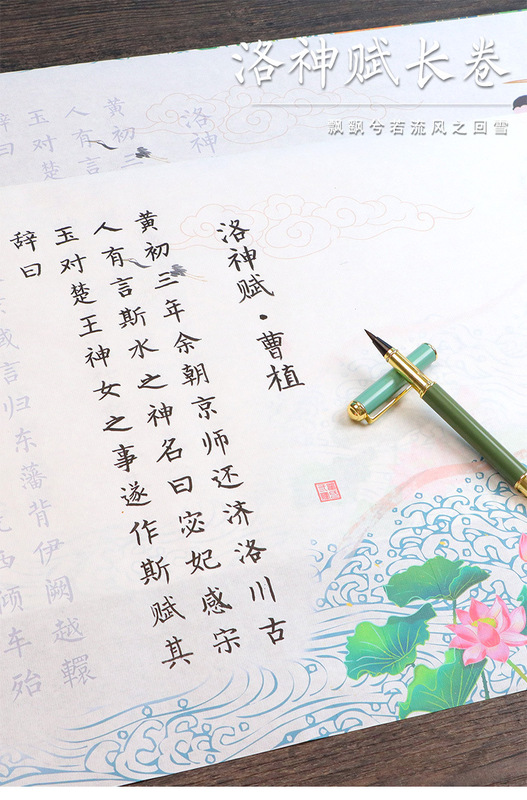 洛神赋长卷
飘飖兮若流风之回雪
洛神
黄初三
人有言
玉对楚
辞曰
洛神赋·曹植
黄初三年余朝京师还济洛川古
人有言斯水之神名曰宓妃感宋
玉对楚王神女之事遂作斯赋其
辞曰
域言归东藩背伊阙越轘
西倾车殆